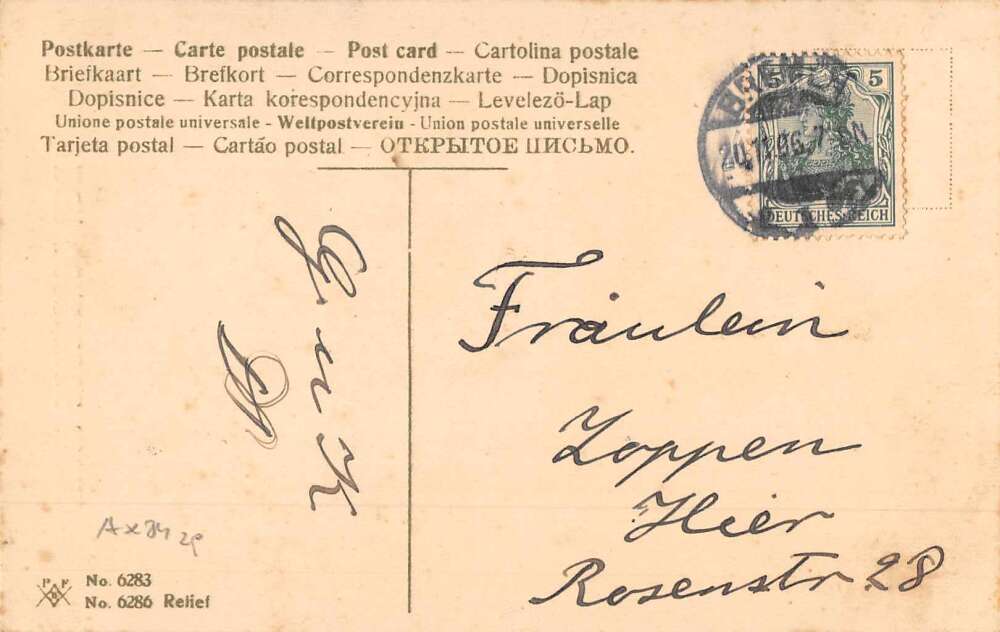 Postkarte — Carte postale — Post card — Cartolina postale
Briefkaart — Brefkort — Correspondenzkarte — Dopisnica
Dopisnice — Karta korespondencyjna — Levelező-Lap
Unione postale universale - Weltpostverein - Union postale universelle
Tarjeta postal — Cartão postal — ОТКРЫТОЕ ПИСЬМО.
5 5
DEUTSCHES REICH
Fräulein
Zoppen
Hier
Rosenstr. 28
No. 6283
No. 6286 Relief